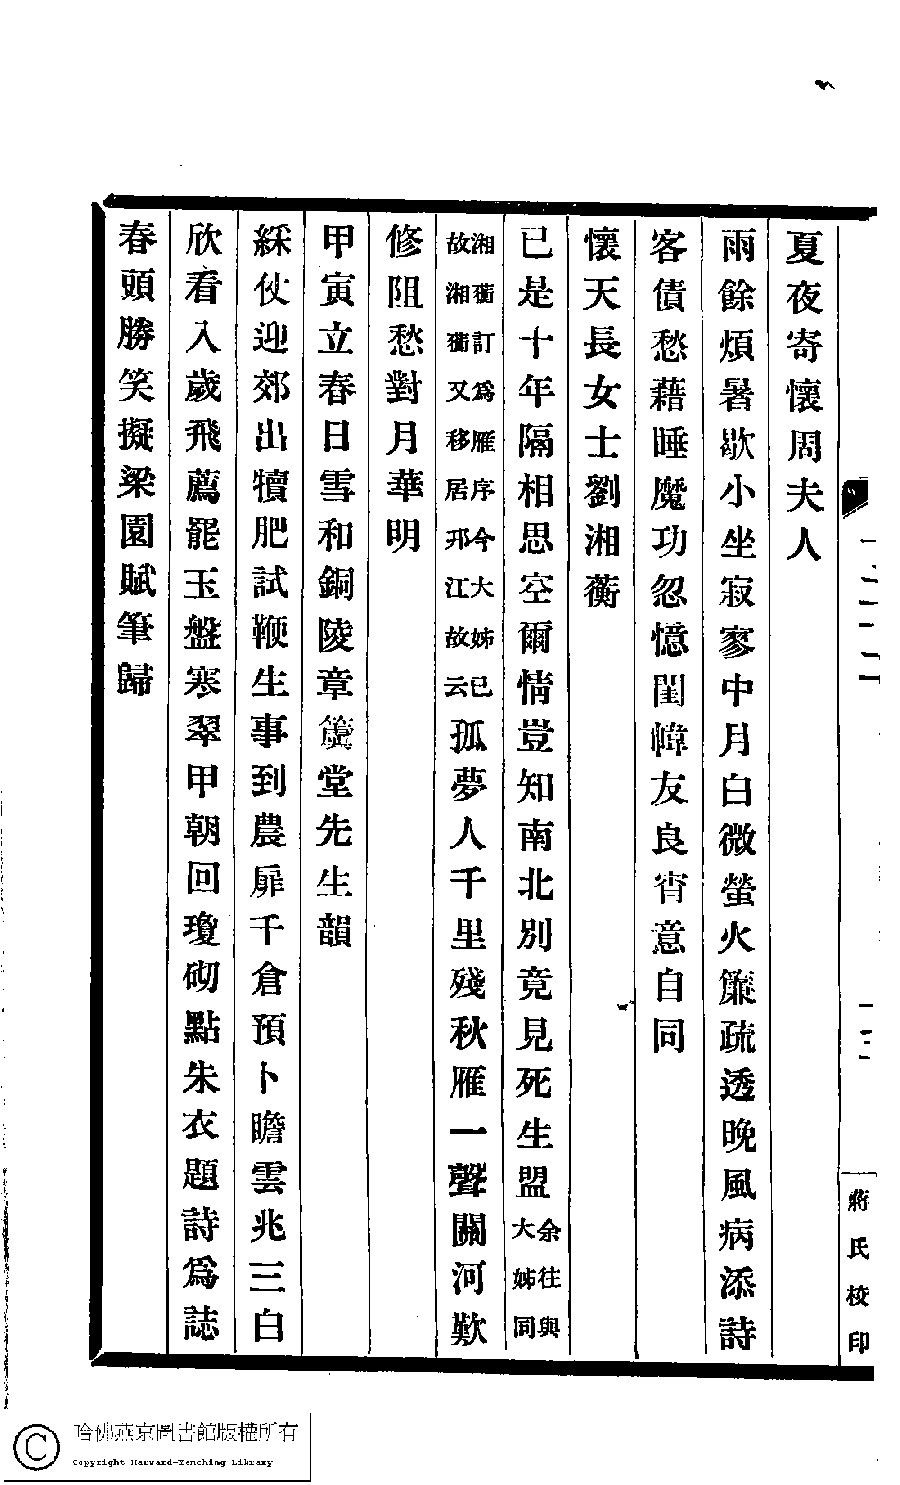 夏夜寄懷周夫人
雨餘煩暑歇小坐寂寥中月白微螢火簾疏透晚風病添詩
客債愁藉睡魔功忽憶閨幃友良宵意自同
懷天長女士劉湘蘅
已是十年隔相思空爾情豈知南北別竟見死生盟余往與大姊同
湘蘅訂爲雁序今大姊已故湘蘅又移居邗江故云孤夢人千里殘秋雁一聲關河歎
修阻愁對月華明
甲寅立春日雪和銅陵章簴堂先生韻
綵仗迎郊出犢肥試鞭生事到農扉千倉預卜瞻雲兆三白
欣看入歲飛薦罷玉盤寒翠甲朝回瓊砌點朱衣題詩爲誌
春頭勝笑擬梁園賦筆歸
蔣氏校印
哈佛燕京圖書館版權所有
Copyright Harvard-Yenching Library